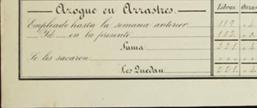 Azogue en Arrastres. Libras Onzas
Empleado hasta la semana anterior 112.
Id. en la presente 112.
Suma 224.
Se les sacaron
Les Quedan 224.